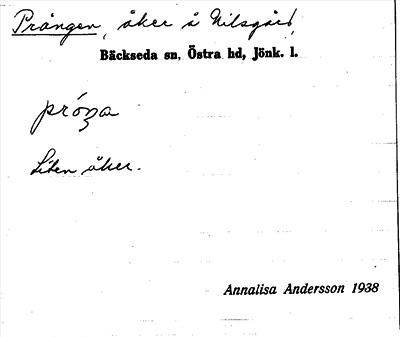 Prången, åker å Nilsgård,
Bäckseda sn, Östra hd, Jönk. l.
Liten åker.
Annalisa Andersson 1938